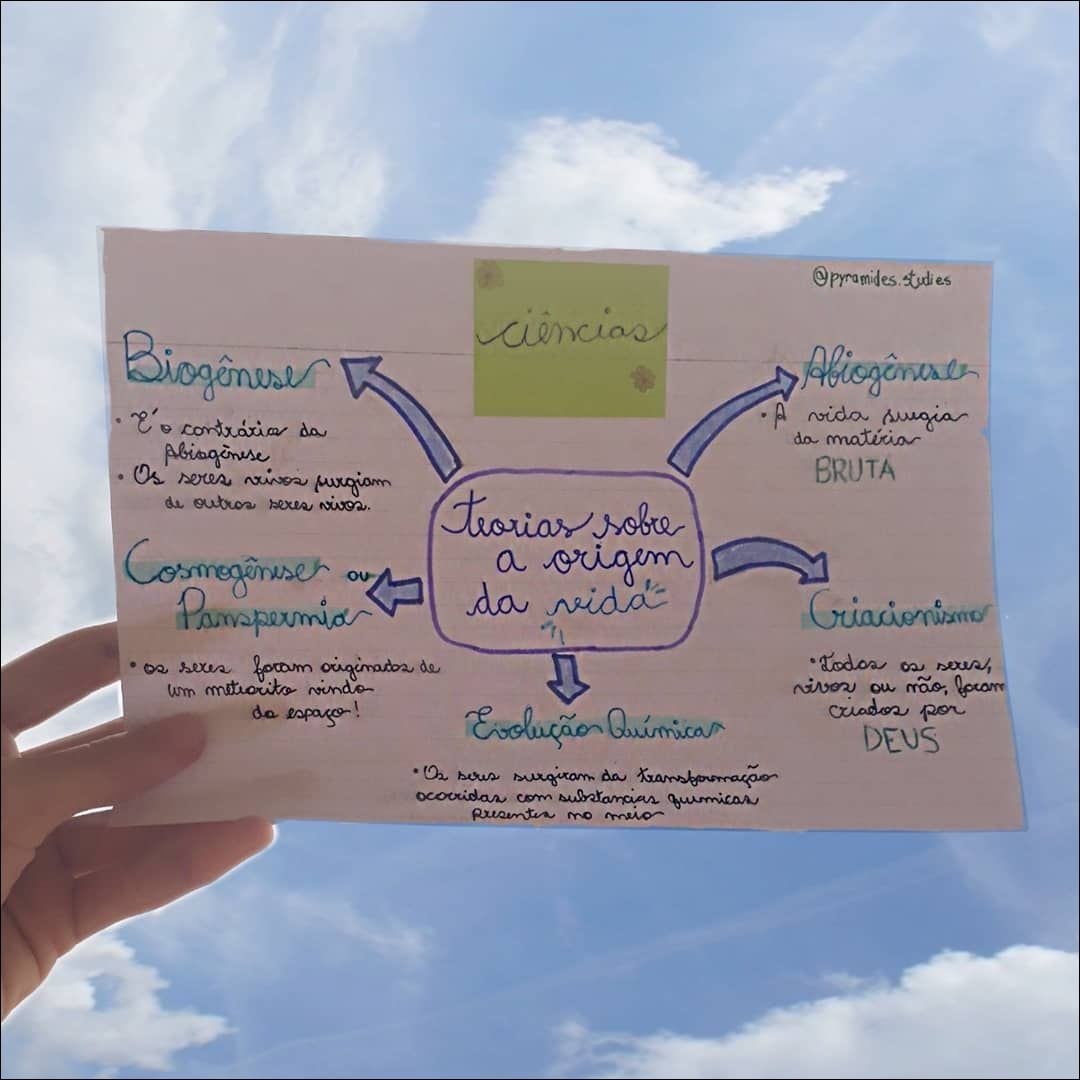 @pyramides.studies
Ciências
Biogênese
• É o contrário da
Abiogênese
• Os seres vivos surgiam
de outros seres vivos.
Abiogênese
• A vida surgia
da matéria
BRUTA
teorias sobre
a origem
da vida
Cosmogênese ou
Panspermia
• os seres foram originados de
um meteorito vindo
do espaço!
Criacionismo
• Todos os seres,
vivos ou não, foram
criados por
DEUS
Evolução Química
• Os seres surgiram da transformação
ocorridas com substancias quimicas
presentes no meio